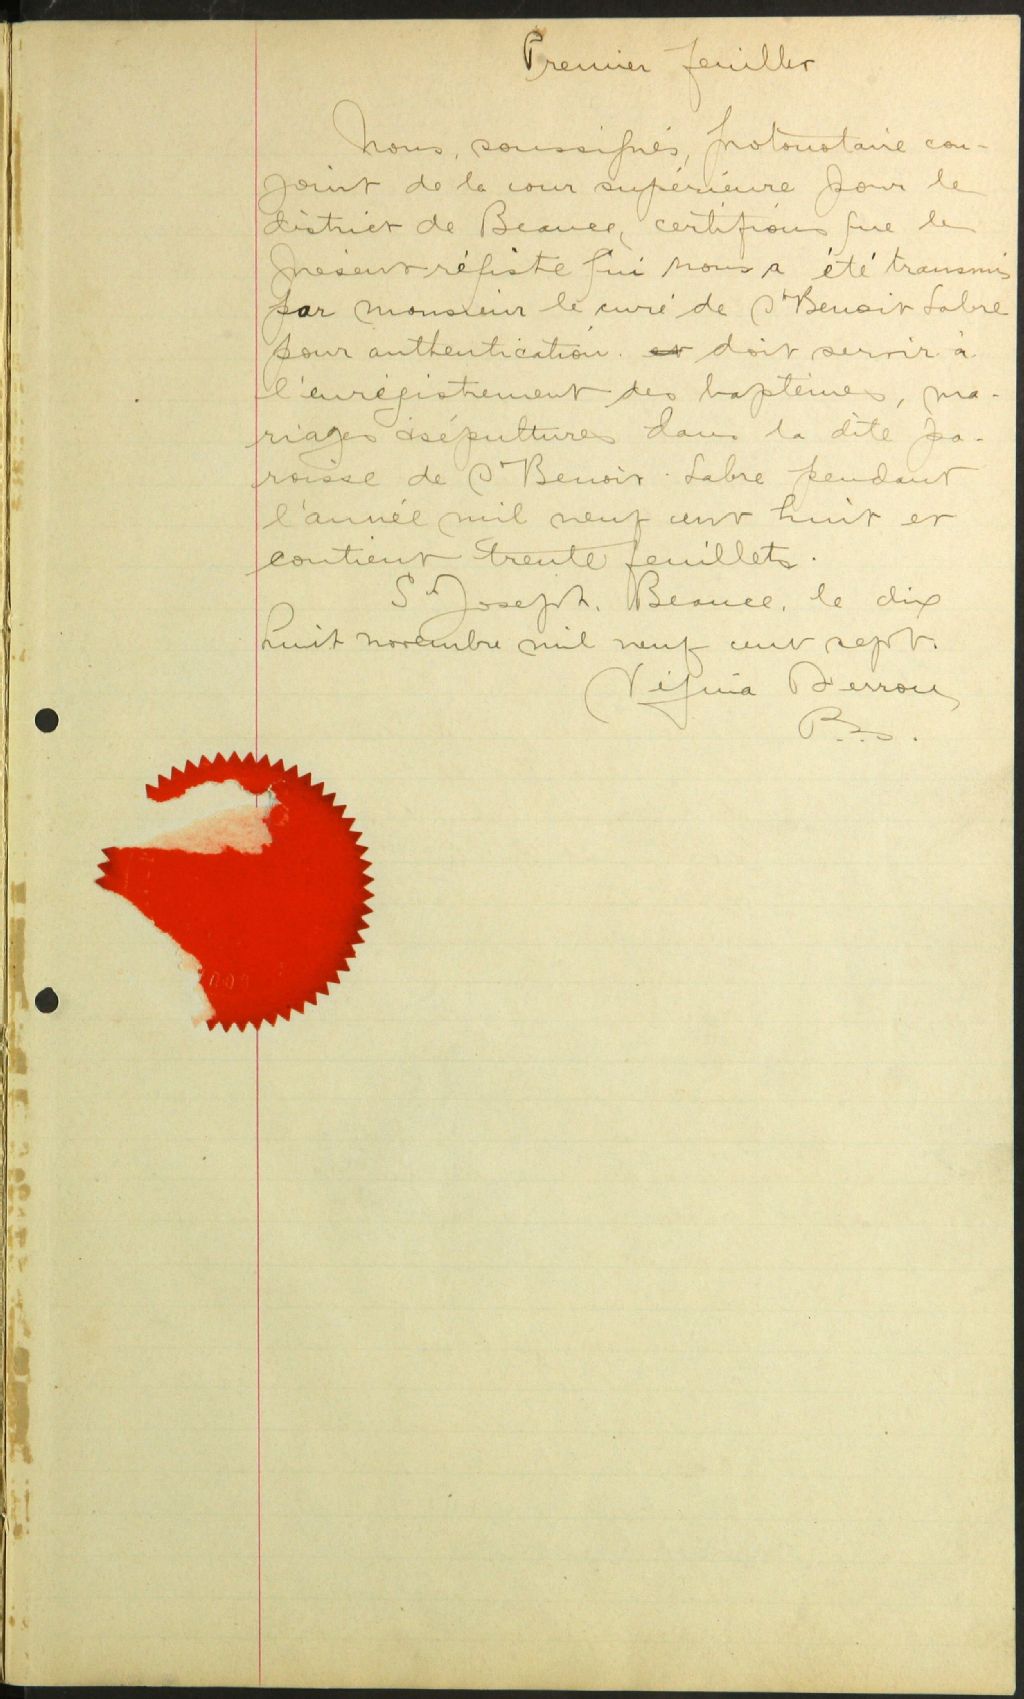 Premier feuillet
Nous, soussignés, protonotaire con-
joint de la cour supérieure pour le
district de Beauce, certifions que le
présent régistre qui nous a été transmis
par monsieur le curé de St Benoit Labre
pour authentication et doit servir à
l'enrégistrement des baptêmes, ma-
riages & sépultures dans la dite pa-
roisse de St Benoit Labre pendant
l'année mil neuf cent huit et
contient trente feuillets.
St Joseph, Beauce, le dix
huit novembre mil neuf cent sept.